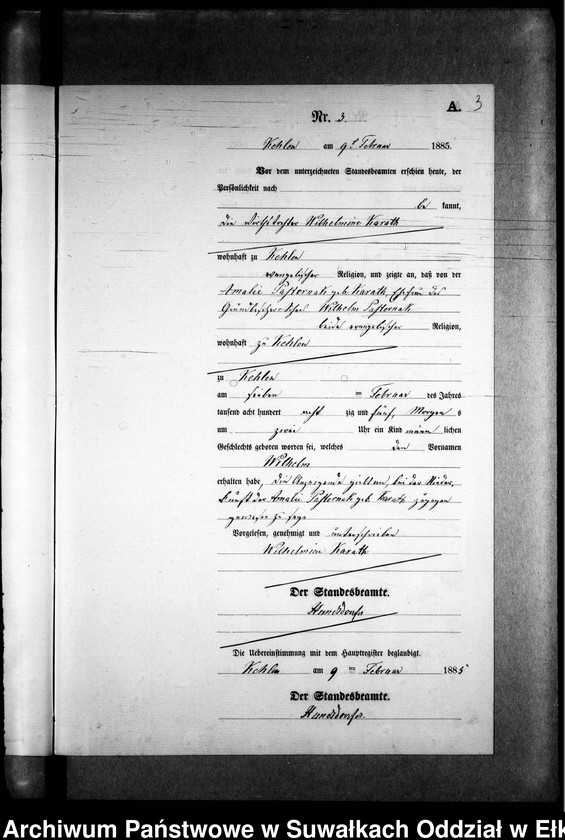 A. 3
Nr. 3.
Kehlen am 9t Februar 1885.
Vor dem unterzeichneten Standesbeamten erschien heute, der
Persönlichkeit nach
be kannt,
die Wilhelmine Karath
wohnhaft zu Kehlen
evangelischer Religion, und zeigte an, daß von der
Amalie Pasternak geb. Karath, Ehefrau des
Wilhelm Pasternak
beide evangelischer Religion,
wohnhaft zu Kehlen
zu Kehlen
am sieben ten Februar des Jahres
tausend acht hundert acht zig und fünf, Morgen s
um zwei Uhr ein Kind männ lichen
Geschlechts geboren worden sei, welches den Vornamen
Wilhelm
erhalten habe, die Anzeigende giebt an, bei der Nieder
kunft der Amalie Pasternak geb. Karath zugegen
gewesen zu sein
Vorgelesen, genehmigt und unterschrieben
Wilhelmine Karath
Der Standesbeamte.
Hundsdorfer
Die Uebereinstimmung mit dem Hauptregister beglaubigt.
Kehlen am 9 ten Februar 1885
Der Standesbeamte.
Hundsdorfer
Archiwum Państwowe w Suwałkach Oddział w Ełk